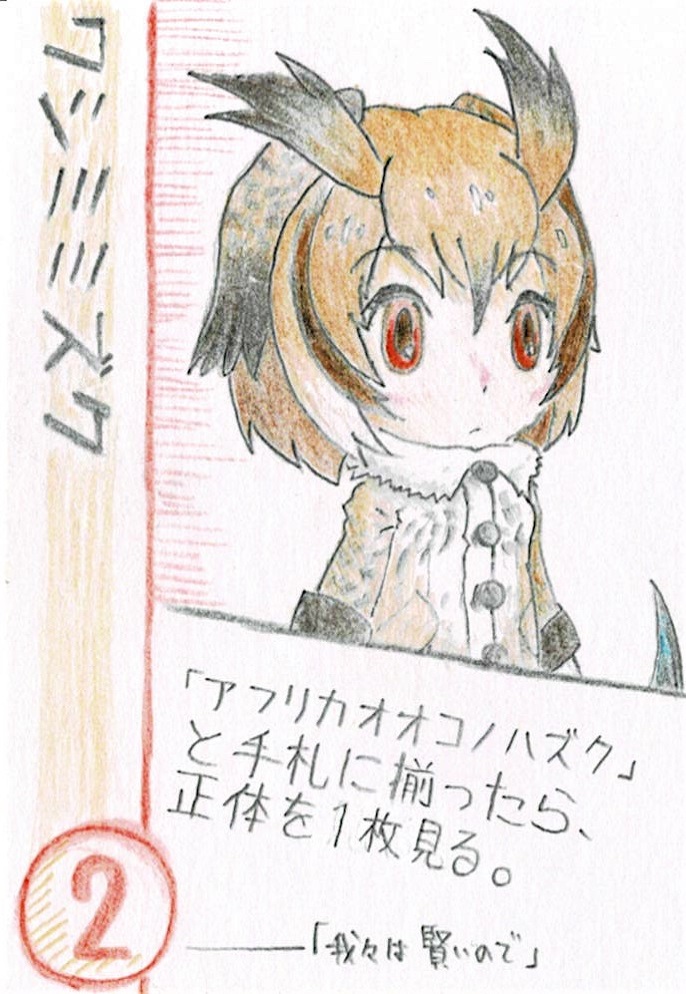 ワシミミズク
「アフリカオオコノハズク」
と手札に揃ったら、
正体を1枚見る。
2
「我々は賢いので」